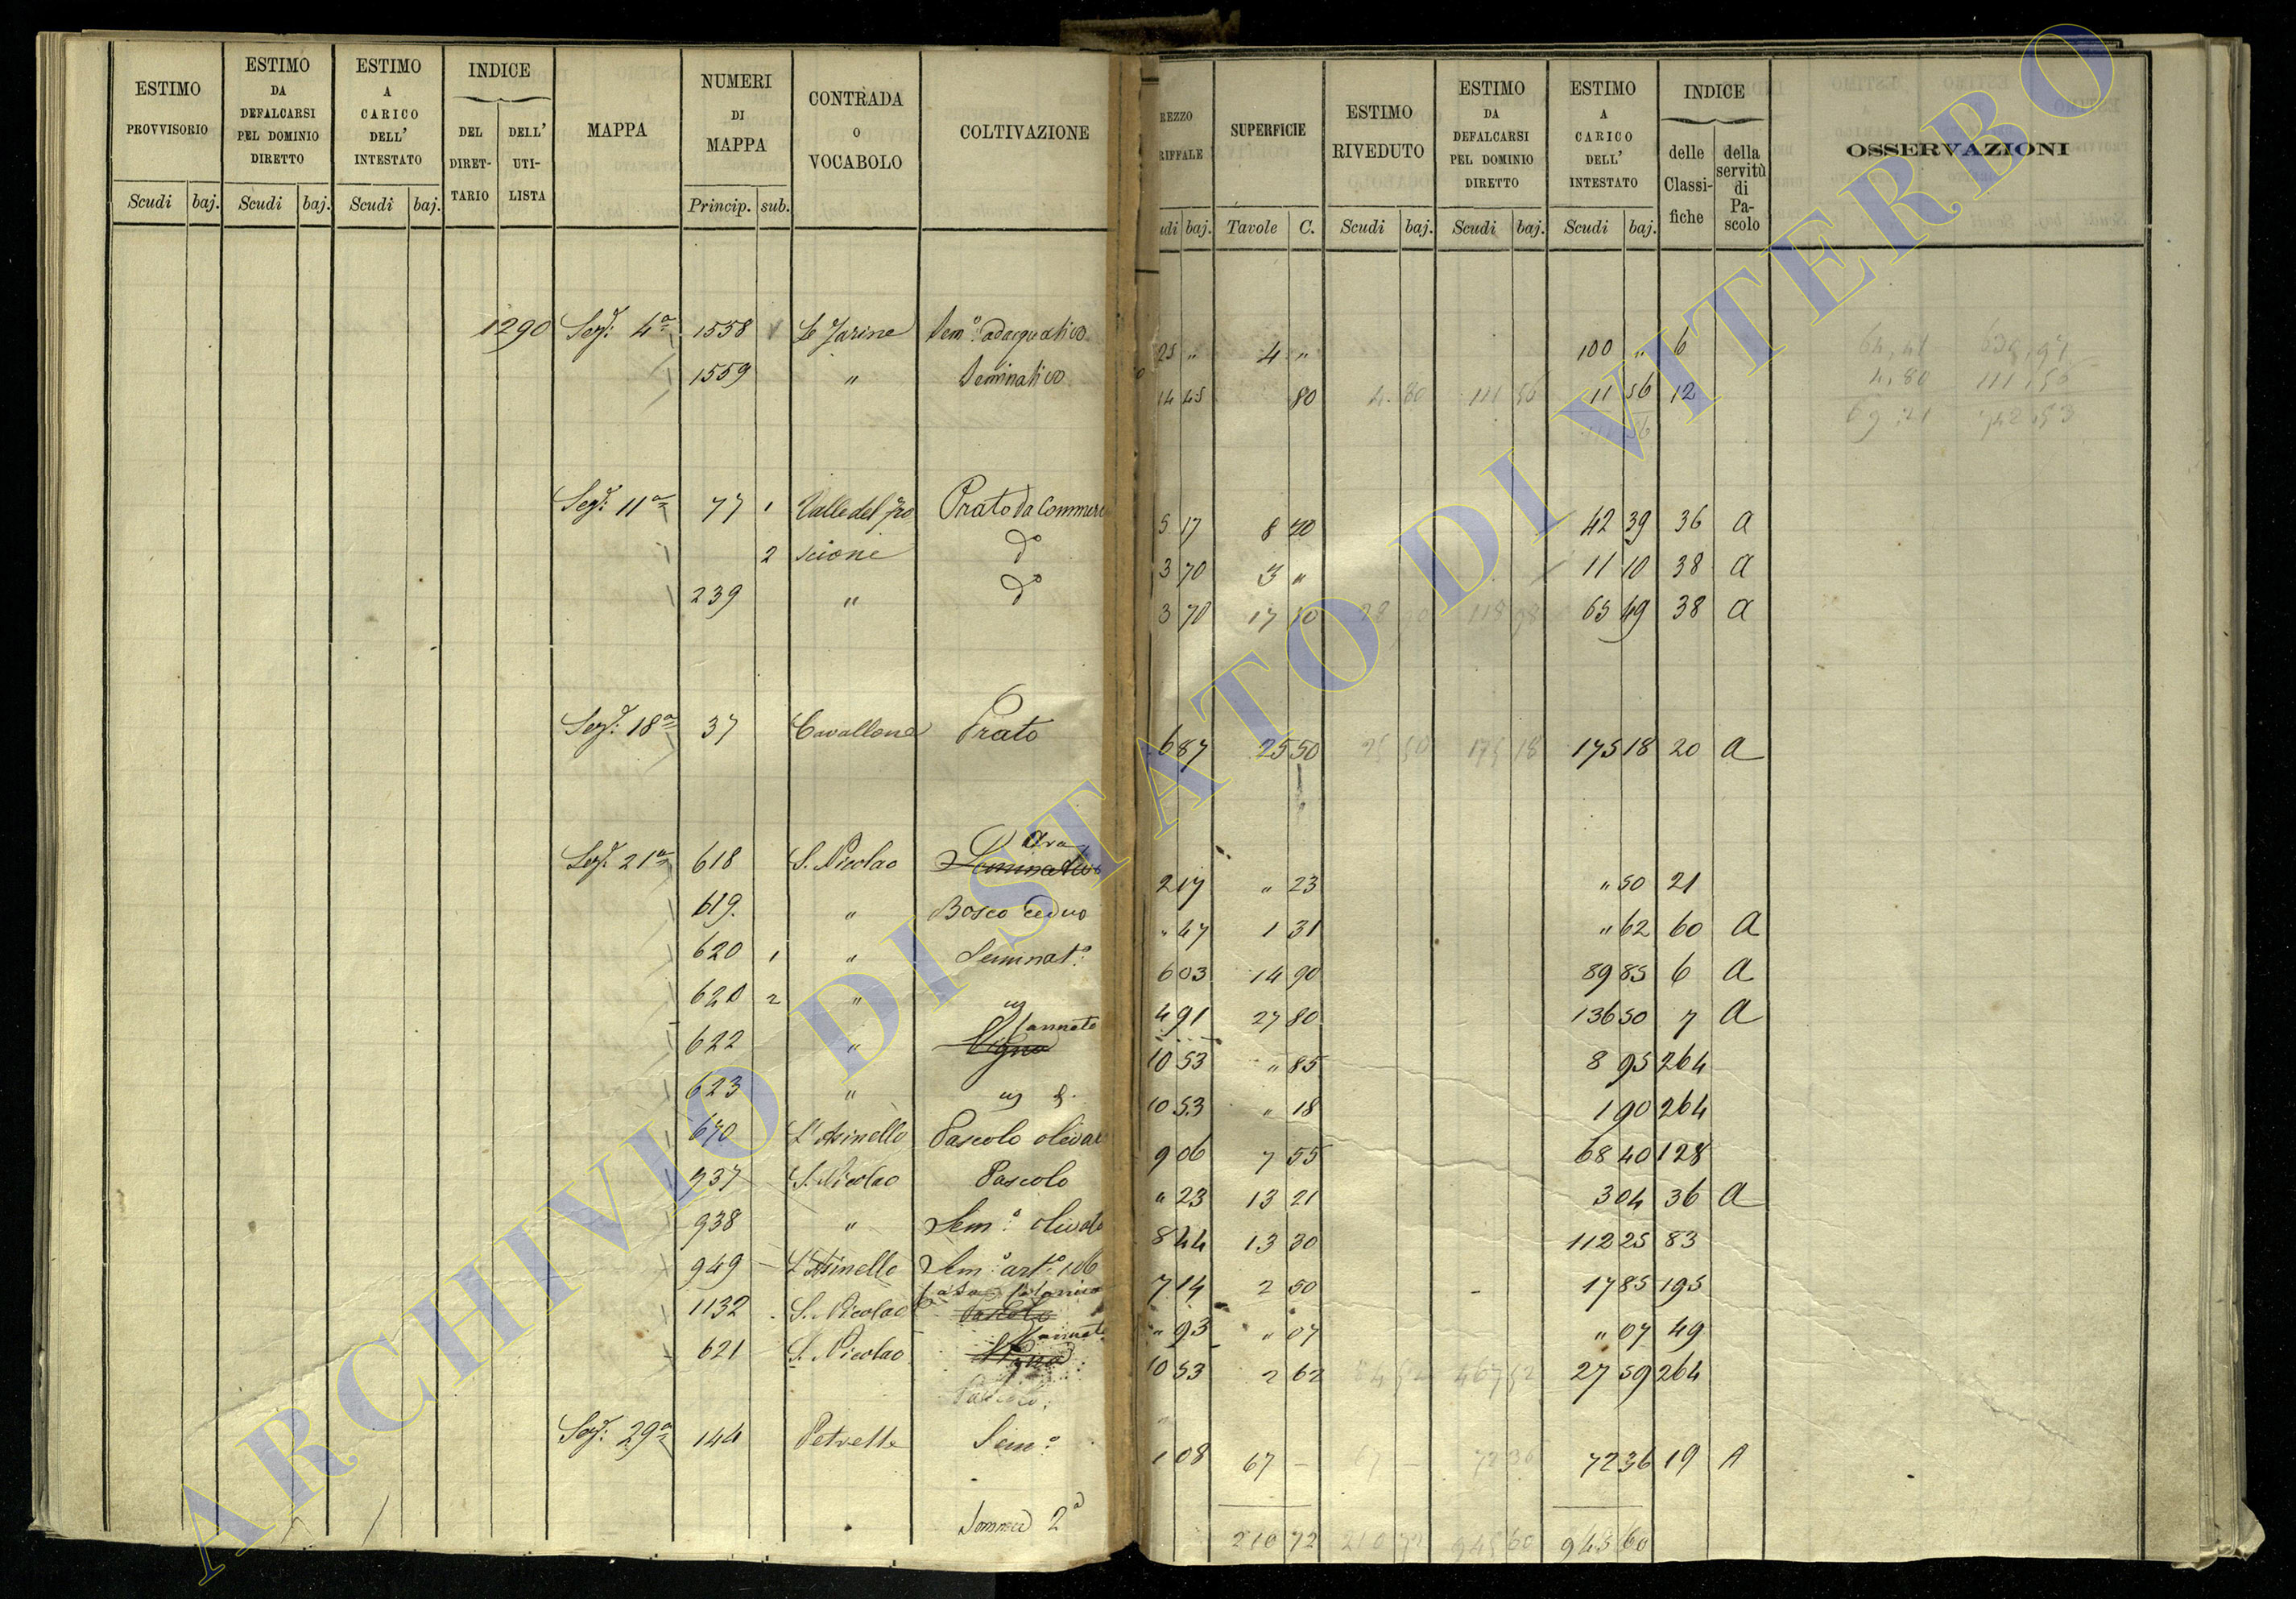 ESTIMO PROVVISORIO Scudi baj.
ESTIMO DA DEFALCARSI PEL DOMINIO DIRETTO Scudi baj.
ESTIMO A CARICO DELL' INTESTATO Scudi baj.
INDICE DEL DIRET-TARIO DELL' UTI-LISTA
MAPPA
NUMERI DI MAPPA Princip. sub.
CONTRADA O VOCABOLO
COLTIVAZIONE
REZZO RIFFALE udi baj.
SUPERFICIE Tavole C.
ESTIMO RIVEDUTO Scudi baj.
ESTIMO DA DEFALCARSI PEL DOMINIO DIRETTO Scudi baj.
ESTIMO A CARICO DELL' INTESTATO Scudi baj.
INDICE delle Classi-fiche della servitù di Pa-scolo
OSSERVAZIONI
1290 Seg: 4a 1558 Le Zarine Sem.o adacquativo 25 " 4 " 100 " 6
1559 " Seminativo 14 45 80 4 80 111 56 11 56 12
111 56
64,41
4,80 111,56
69,21 742,53
Seg: 11a 77 1 Valle del fro Prato da Commerc 5 17 8 20 42 39 36 A
2 scione do 3 70 3 " 11 10 38 A
239 " do 3 70 17 70 65 49 38 A
Seg: 18a 37 Cavallone Prato 6 87 25 50 25 50 175 18 175 18 20 A
Seg: 21a 618 S. Nicolao Seminativo Ara 2 17 " 23 " 50 21
619. " Bosco ceduo " 47 1 31 " 62 60 A
620 1 " Seminat.o 6 03 14 90 89 85 6 A
620 2 " " 4 91 27 80 136 50 7 A
622 " Vigna Canneto 10 53 " 85 8 95 264
623 " 10 53 " 18 1 90 264
670 L'Asinello Pascolo olivat 9 06 7 55 68 40 128
937 S. Nicolao Pascolo " 23 13 21 3 04 36 A
938 " Sem.o olivato 8 44 13 30 112 25 83
949 L'Asinello Sem.o art.o 106 7 14 2 50 17 85 195
1132 S. Nicolao Pascolo Casa Colonica " 93 " 07 " 07 49
621 S. Nicolao Vigna Canneto 10 53 2 62 467 52 27 59 264
Pascolo.
Seg: 29a 144 Petrelle Sem.o 1 08 67 — 67 — 72 36 72 36 19 A
Somma 2a 210 72 210 72 945 60 945 60
ARCHIVIO DI STATO DI VITERBO